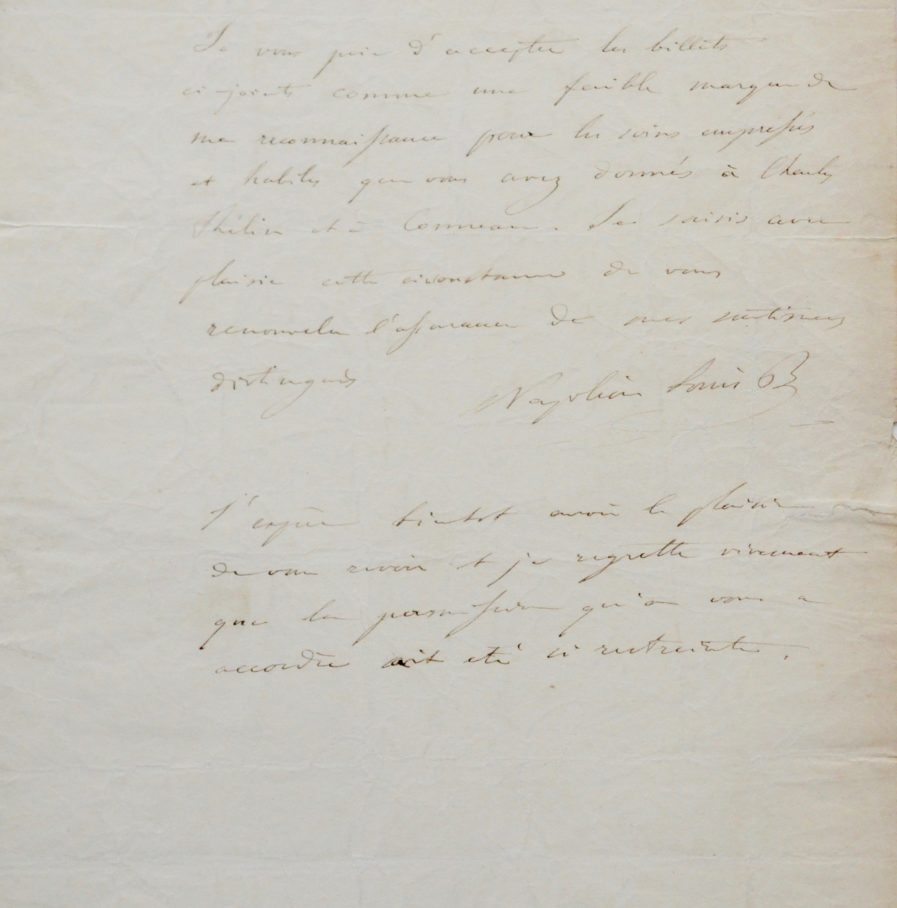 Je vous prie d'accepter les billets
ci-joints comme une faible marque de
ma reconnaissance pour les soins empressés
et habiles que vous avez donnés à Charles
Thélin et à Conneau. Je saisis avec
plaisir cette circonstance de vous
renouveler l'assurance de mes sentimens
distingués
Napoléon Louis B
J'espère bientot avoir le plaisir
de vous revoir et je regrette vivement
que la permission qu'on vous a
accordée ait été si restreinte.